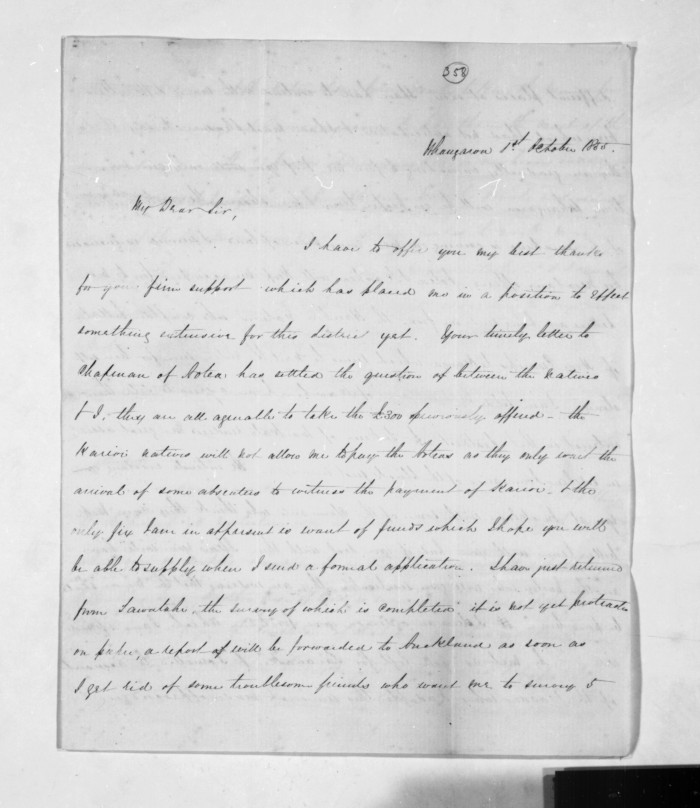 358
1st October 1855.
My Dear Sir,
I have to offer you my best thanks
for your firm support which has placed me in a position to effect
something extensive for this district yet. Your timely letter to
Chapman of Aotea has settled the question of between the Natives
& I. they are all agreeable to take the £300 previously offered - the
Karioi natives will not allow me to pay the Aoteas as they only want the
arrival of some absentees to witness the payment of Karioi. & the
only fix I am in at present is want of funds which I hope you will
be able to supply when I send a formal application. I have just returned
from the survey of which is completed. it is not yet protracted
on paper, a report of will be forwarded to Auckland as soon as
I get rid of some troublesome friends who want me to survey &